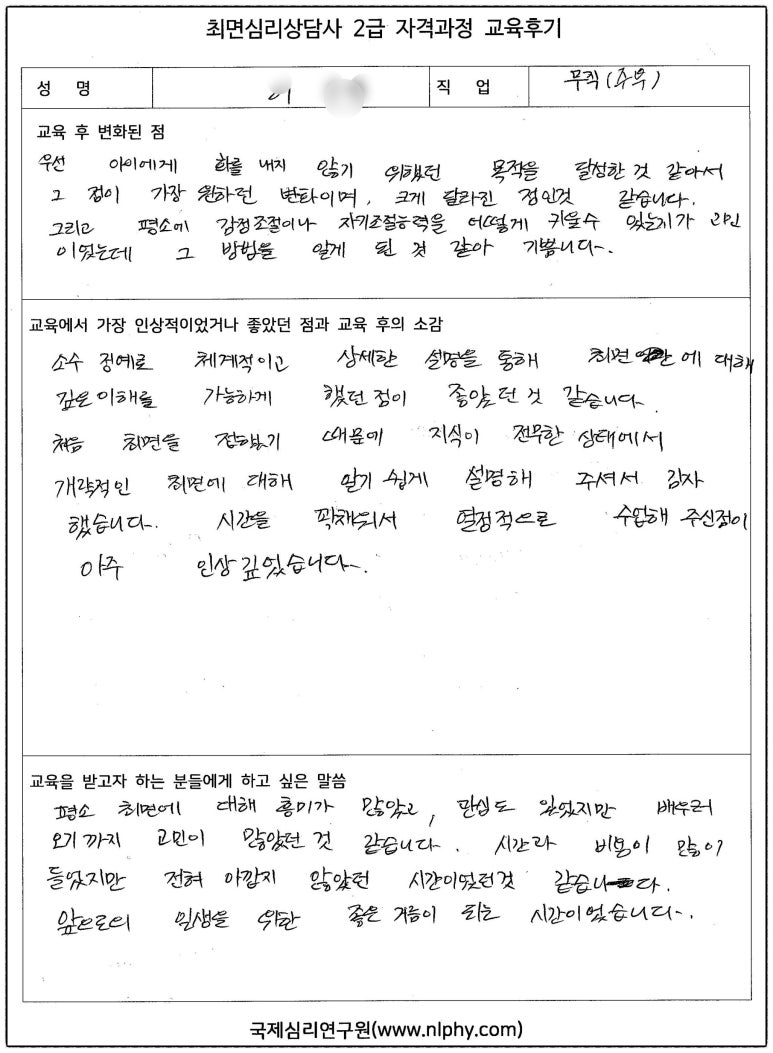 최면심리상담사 2급 자격과정 교육후기
성 명
직 업 무직(주부)
교육 후 변화된 점
우선 아이에게 화를 내지 않기 위했던 목적을 달성한 것 같아서
그 점이 가장 원하던 변화이며, 크게 달라진 점인것 같습니다.
그리고 평소에 감정조절이나 자기조절능력을 어떻게 키울수 있는지가 고민
이었는데 그 방법을 알게 된 것 같아 기쁩니다.
교육에서 가장 인상적이었거나 좋았던 점과 교육 후의 소감
소수 정예로 체계적이고 상세한 설명을 통해 최면 에 대해
깊은 이해를 가능하게 했던 점이 좋았던 것 같습니다.
처음 최면을 접하기 때문에 지식이 전무한 상태에서
개략적인 최면에 대해 알기 쉽게 설명해 주셔서 감사
했습니다. 시간을 꽉채워서 열정적으로 수업해 주신점이
아주 인상 깊었습니다.
교육을 받고자 하는 분들에게 하고 싶은 말씀
평소 최면에 대해 흥미가 많았고, 관심도 있었지만 배우러
오기 까지 고민이 많았던 것 같습니다. 시간과 비용이 많이
들었지만 전혀 아깝지 않았던 시간이었던것 같습니다.
앞으로의 인생을 위한 좋은 거름이 되는 시간이었습니다.
국제심리연구원(www.nlphy.com)